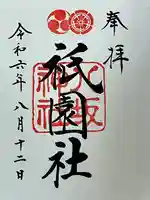 奉拝
八坂神社
祇園社
令和六年八月十二日